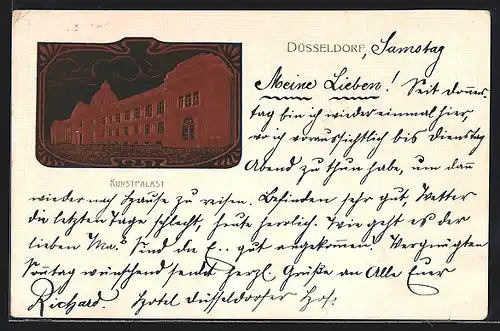 DÜSSELDORF, Samstag
Meine Lieben! Seit Donners-
tag bin ich wieder einmal hier,
wo ich voraussichtlich bis Dienstag
Abend zu thun habe, um dann
KUNSTPALAST
wieder nach Hause zu reisen. Befinden sehr gut, Wetter
die letzten Tage schlecht, heute herrlich. Wie geht es der
lieben Ma? Sind die E.. gut angekommen. Vergnügten
Sonntag wünschend sendet herzl. Grüße an Alle Euer
Richard. Hotel Düsseldorfer Hof.